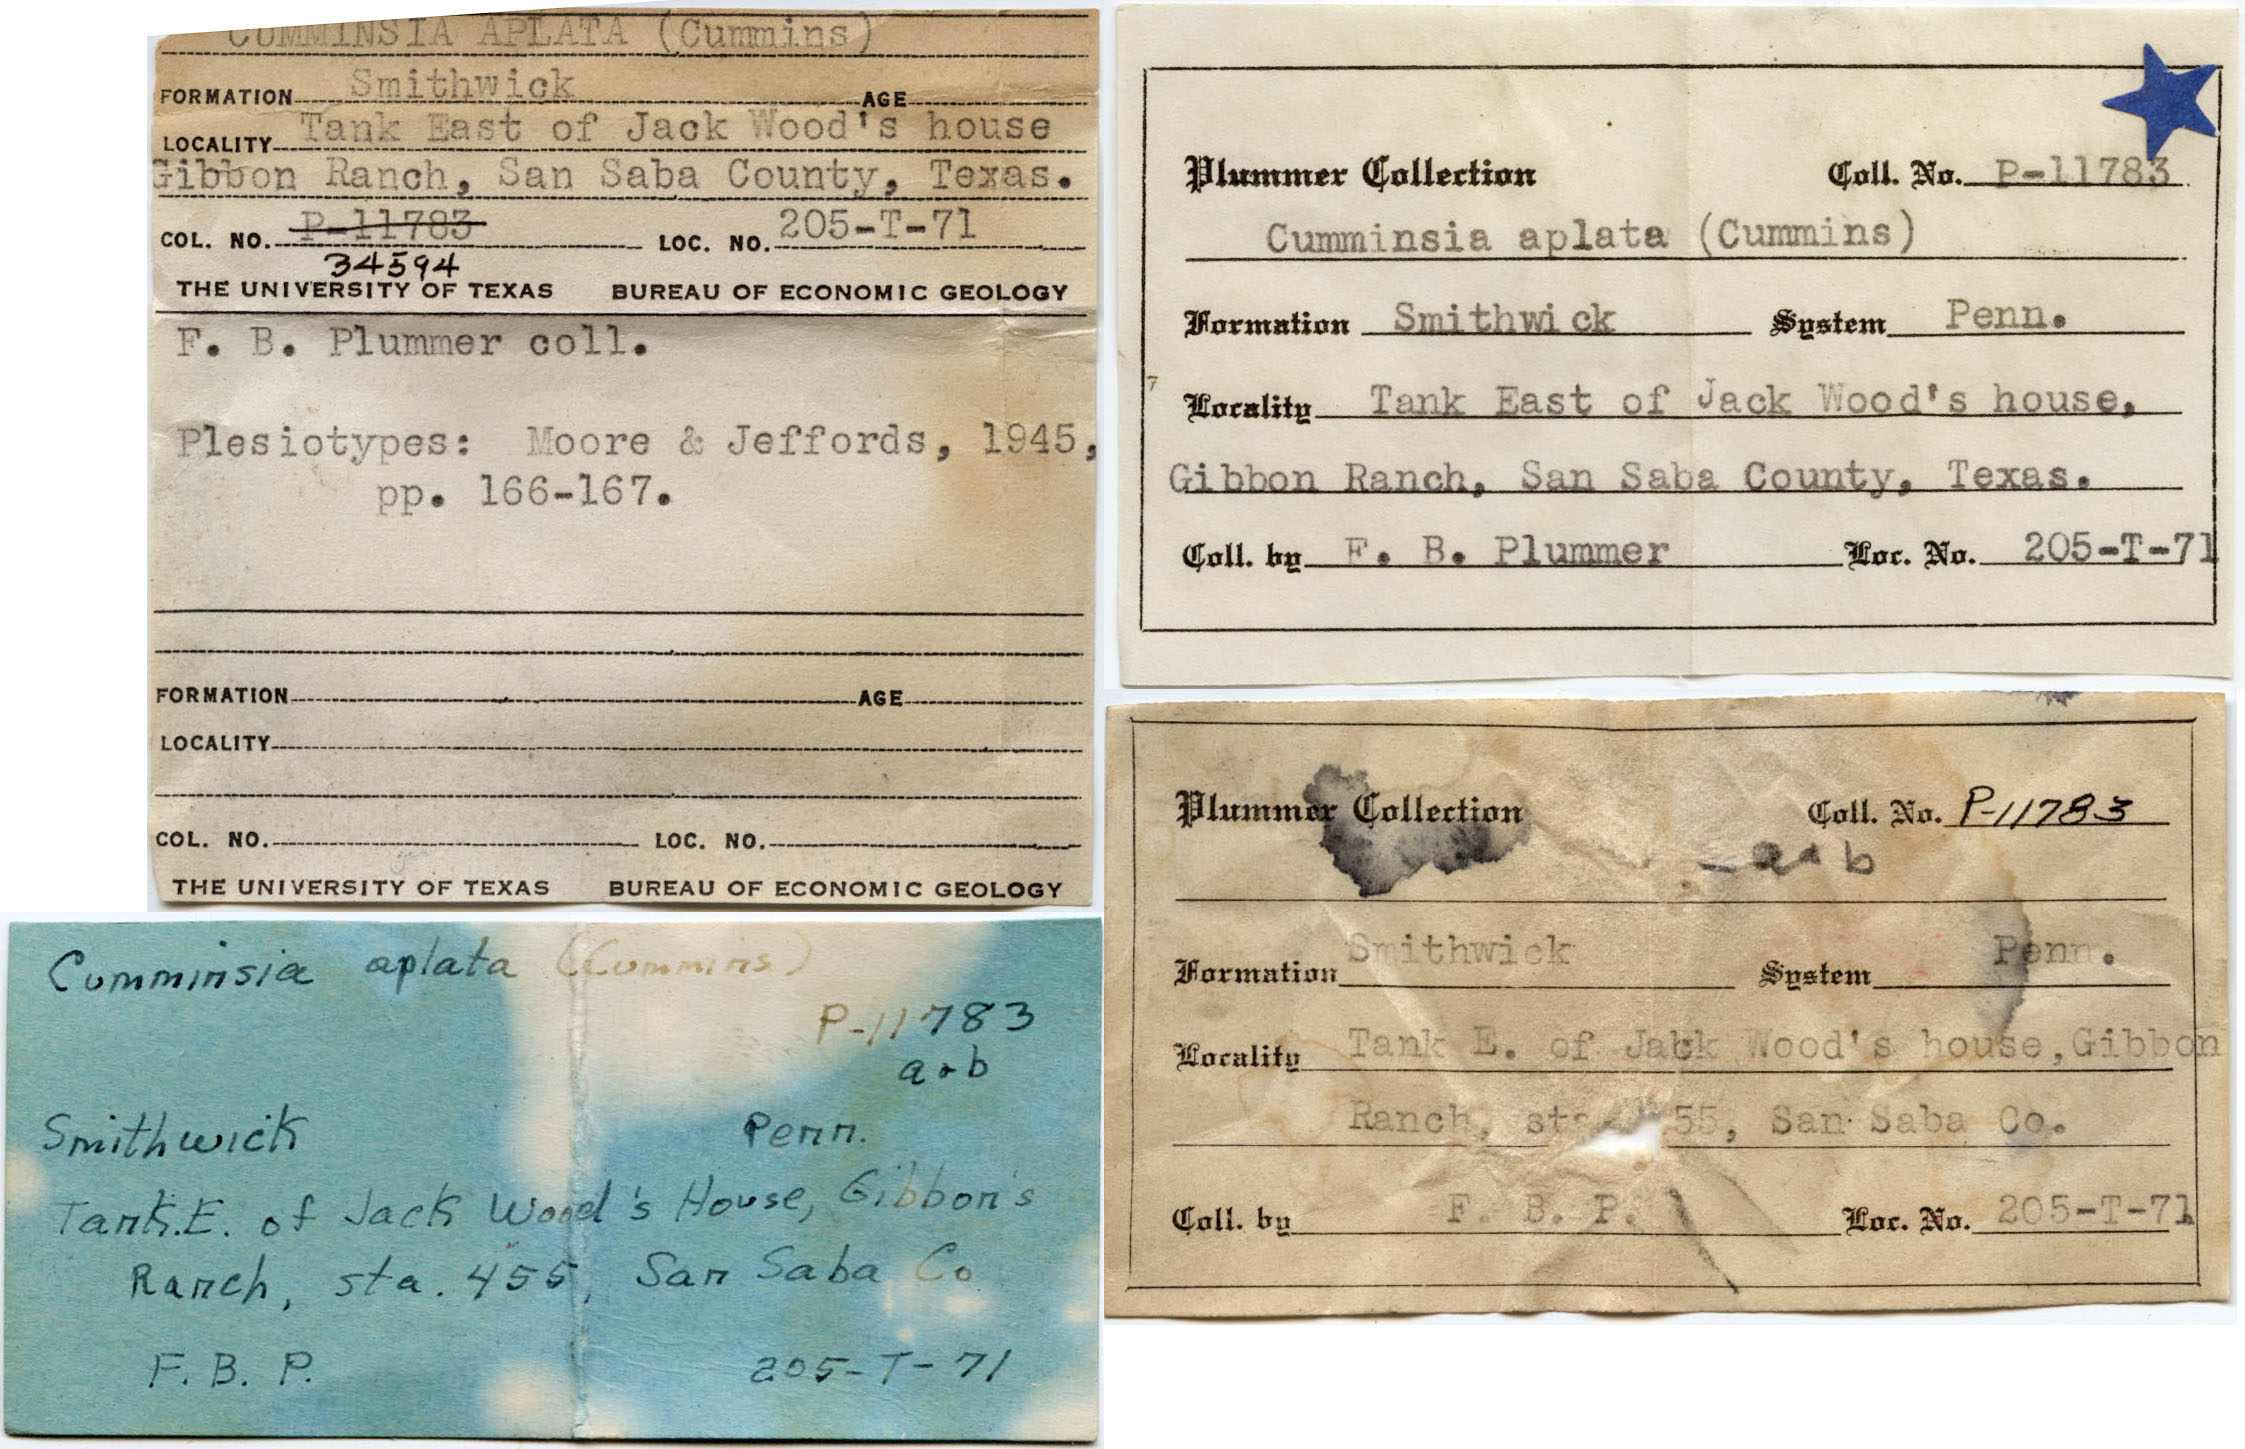 CUMMINSIA APLATA (Cummins)
FORMATION Smithwick AGE
LOCALITY Tank East of Jack Wood's house
Gibbon Ranch, San Saba County, Texas.
COL. NO. P-11783 LOC. NO. 205-T-71
34594
THE UNIVERSITY OF TEXAS BUREAU OF ECONOMIC GEOLOGY
F. B. Plummer coll.
Plesiotypes: Moore & Jeffords, 1945,
pp. 166-167.
FORMATION AGE
LOCALITY
COL. NO. LOC. NO.
THE UNIVERSITY OF TEXAS BUREAU OF ECONOMIC GEOLOGY
Plummer Collection Coll. No. P-11783
Cumminsia aplata (Cummins)
Formation Smithwick System Penn.
Locality Tank East of Jack Wood's house,
Gibbon Ranch, San Saba County, Texas.
Coll. by F. B. Plummer Loc. No. 205-T-71
Cumminsia aplata (Cummins)
P-11783
a+b
Smithwick Penn.
Tank.E. of Jack Wood's House, Gibbon's
Ranch, sta. 455, San Saba Co
F. B. P. 205-T-71
Plummer Collection Coll. No. P-11783
-a+b
Formation Smithwick System Penn.
Locality Tank E. of Jack Wood's house, Gibbon
Ranch, 55, San Saba Co.
Coll. by F. B. P. Loc. No. 205-T-71